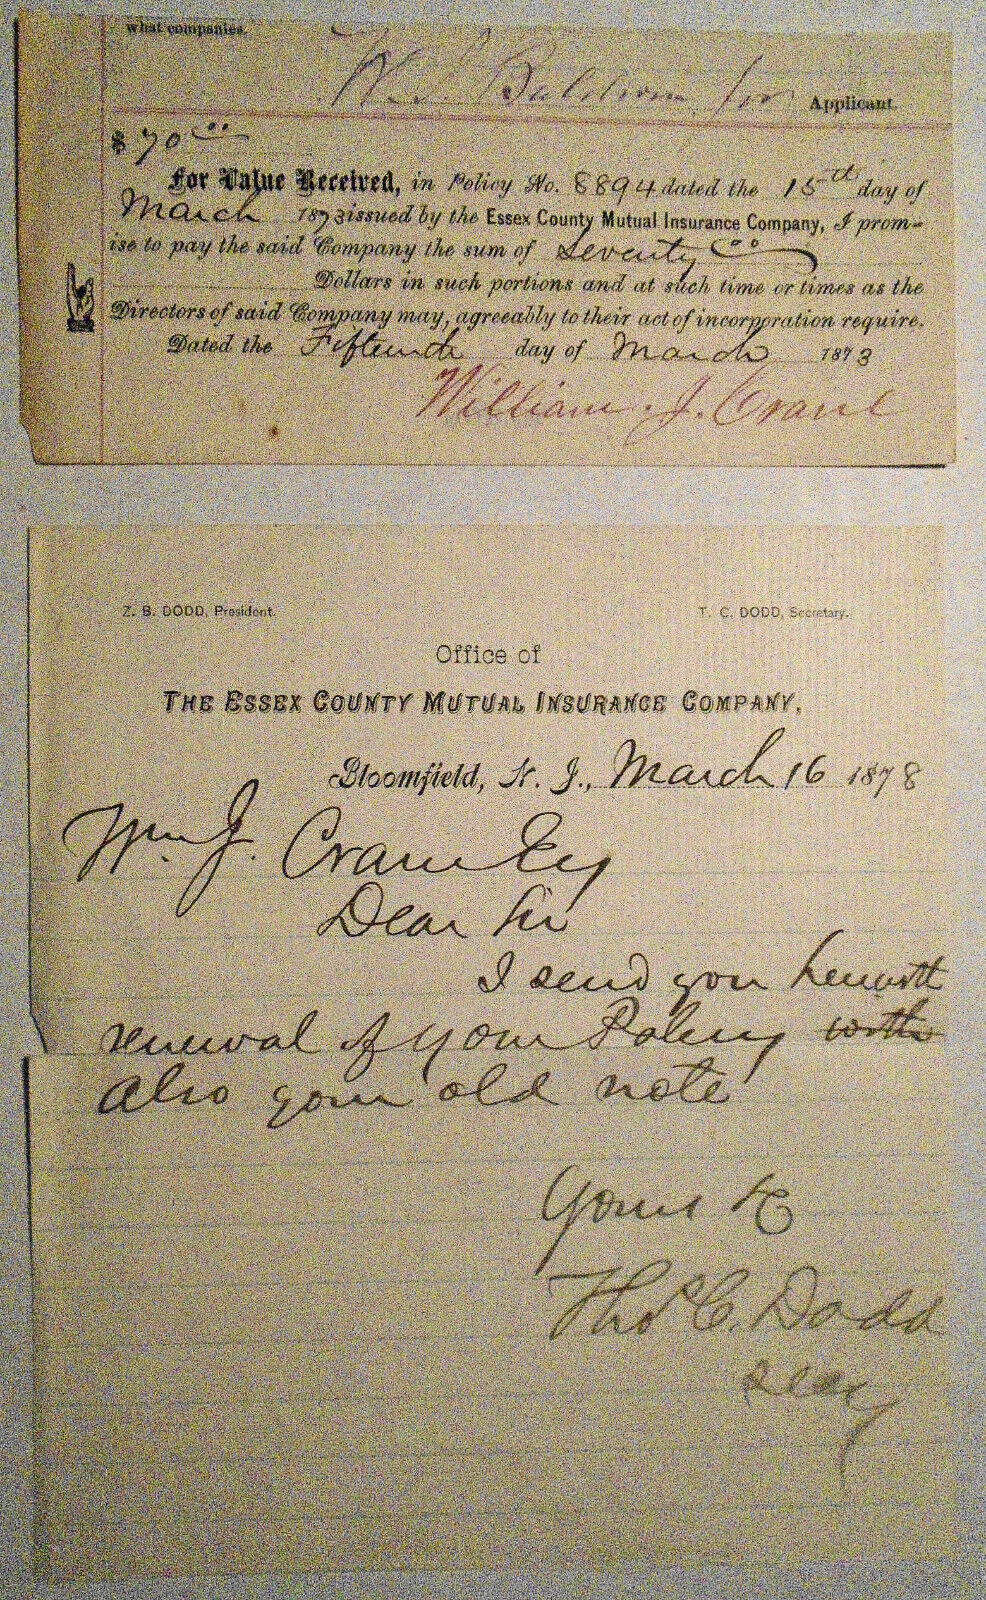 what companies.
Baldwin for Applicant.
$ 70 00
For Value Received, in Policy No. 8894 dated the 15th day of
March 1873 issued by the Essex County Mutual Insurance Company, I prom-
ise to pay the said Company the sum of Seventy 00
Dollars in such portions and at such time or times as the
Directors of said Company may, agreeably to their act of incorporation require.
Dated the Fifteenth day of March 1873
William J. Crane
Z. B. DODD, President. T. C. DODD, Secretary.
Office of
THE ESSEX COUNTY MUTUAL INSURANCE COMPANY,
Bloomfield, N. J., March 16 1878
Wm. J. Crane Esq
Dear Sir
I send you herewith
renewal of your Policy with
also your old note
Yours &c
Thos C. Dodd
Secy